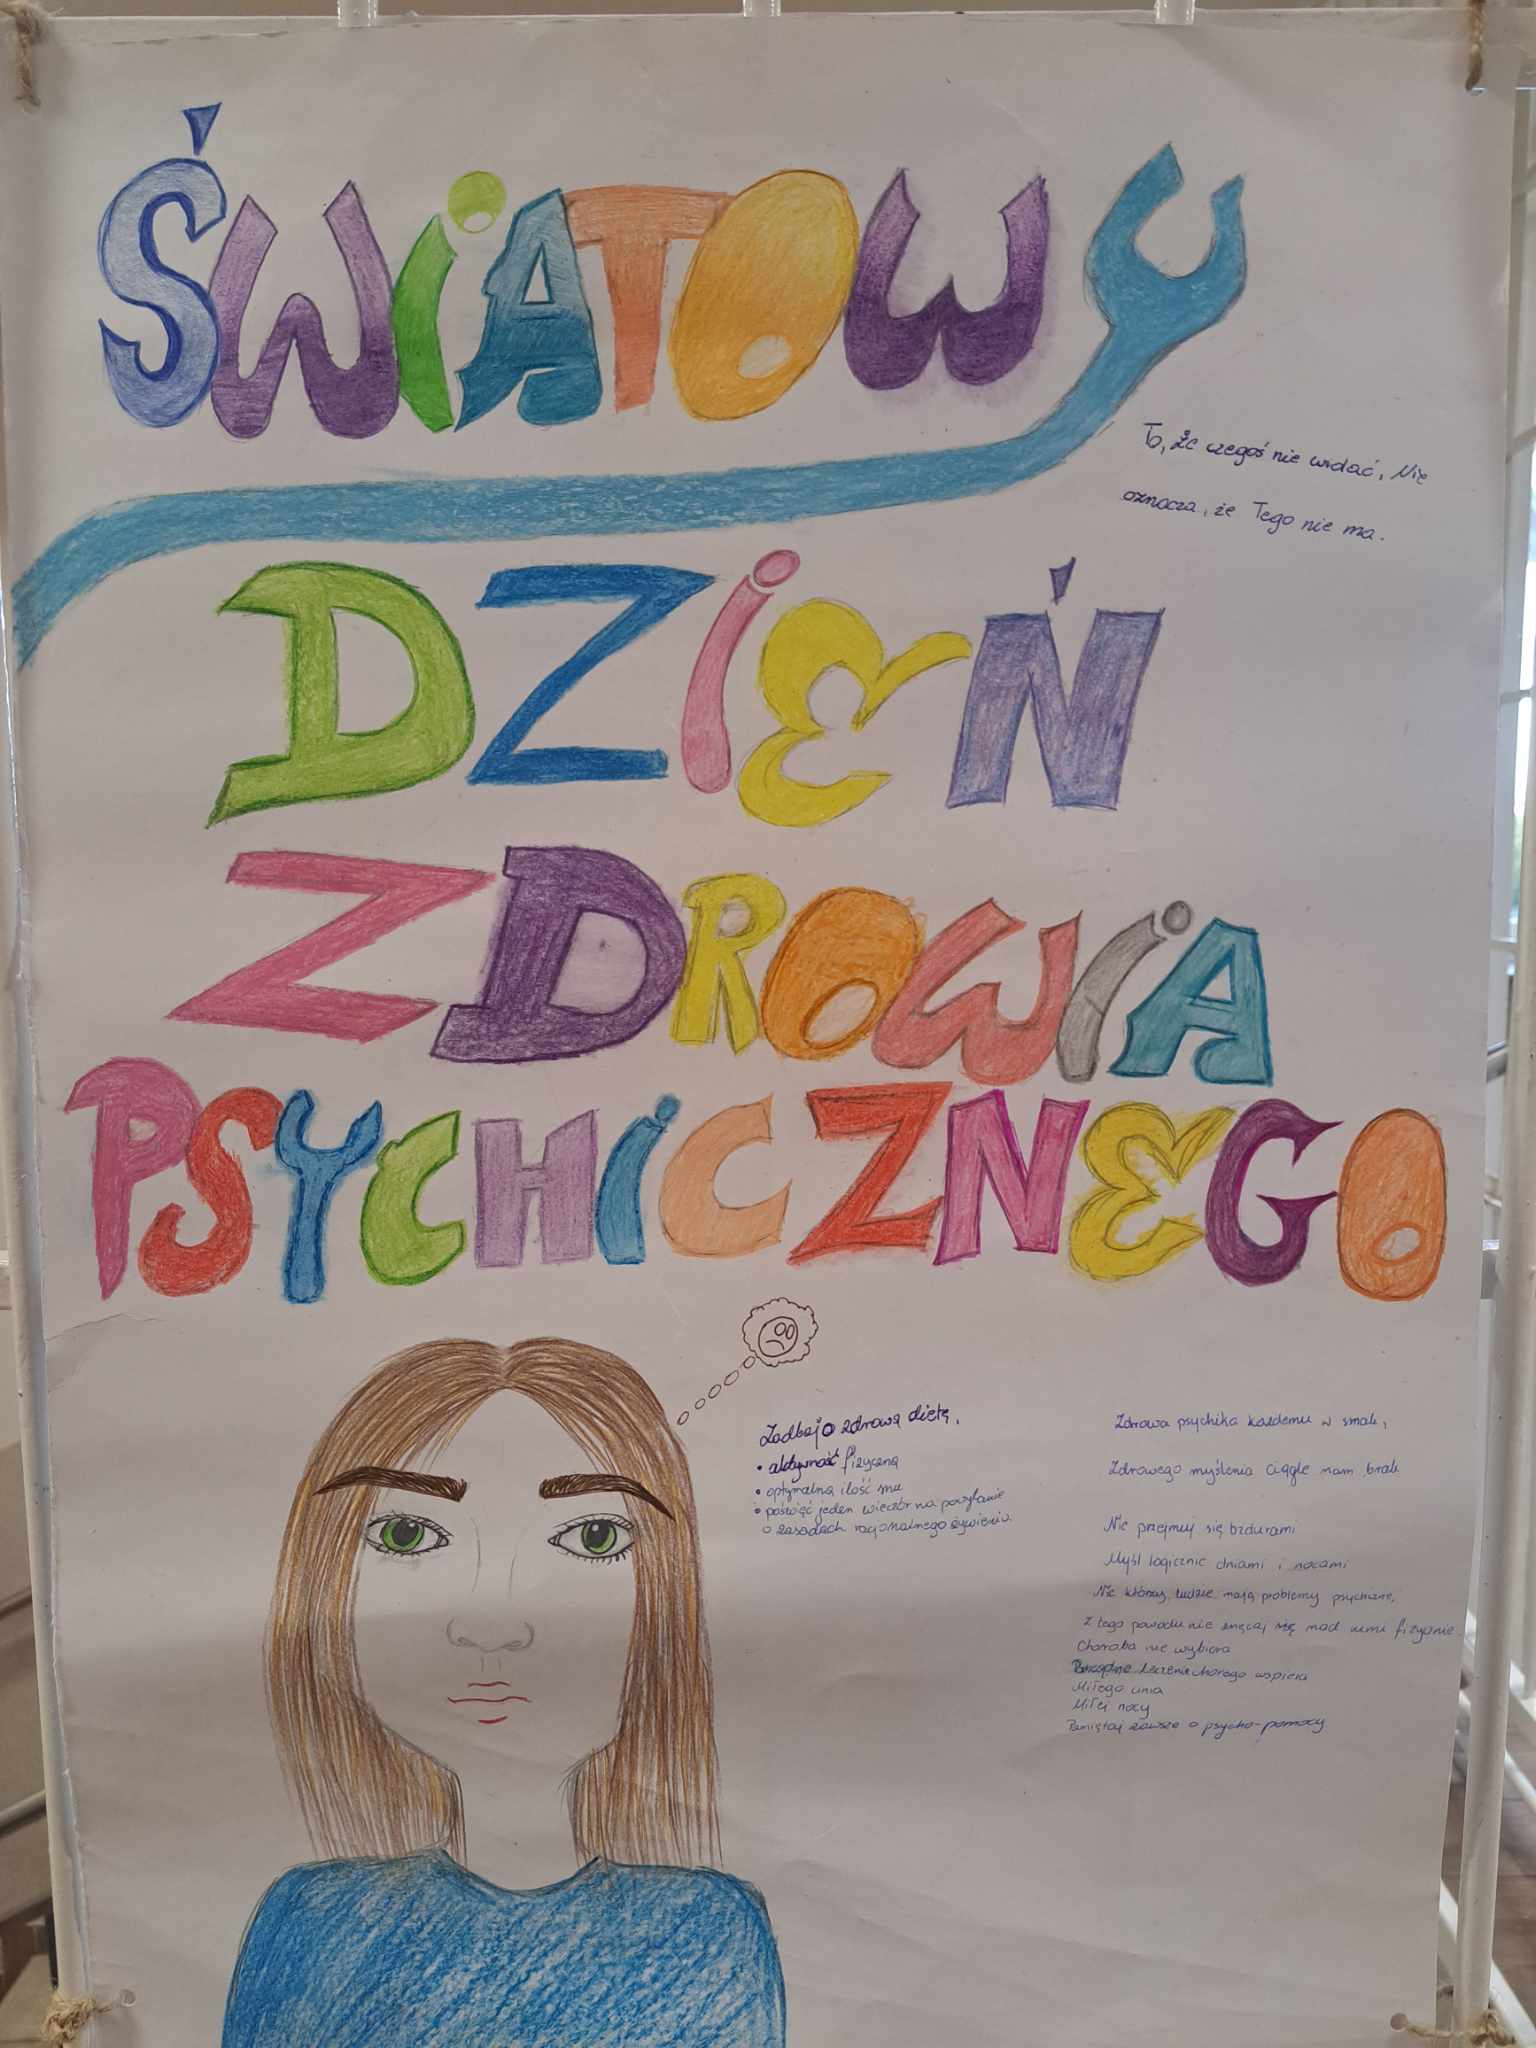 ŚWiATOWY
To, że czegoś nie widać, Nie
oznacza, że Tego nie ma.
DZiEŃ
ZDROWiA
PSYCHiCZNEGO
Zadbaj o zdrową dietę,
• aktywność fizyczną
• optymalną ilość snu
• poświęć jeden wieczór na poczytanie
o zasadach racjonalnego żywieniu.
Zdrowa psychika każdemu w smak,
Zdrowego myślenia ciągle nam brak
Nie przejmuj się bzdurami
Myśl logicznie dniami i nocami
Nie którzy ludzie mają problemy psychiczne,
Z tego powodu nie znęcaj się nad nimi fizycznie.
Choroba nie wybiera
Porządne leczenie chorego wspiera
Miłego dnia
Miłej nocy
Pamiętaj zawsze o psycho-pomocy